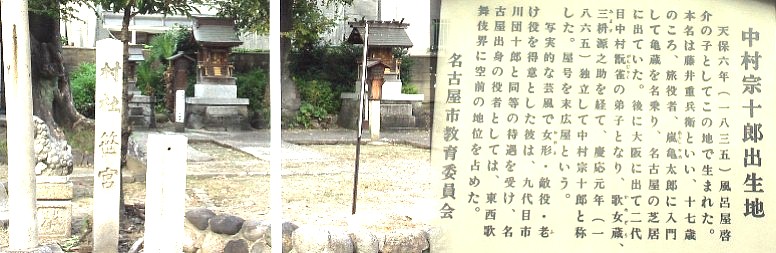 村社 笹宮
中村宗十郎出生地
天保六年(一八三五)風呂屋啓
介の子としてこの地で生まれた。
本名は藤井重兵衛といい、十七歳
のころ、旅役者、嵐亀太郎に入門
して亀蔵を名乗り、名古屋の芝居
に出ていた。後に大阪に出て二代
目中村翫雀の弟子となり、歌女蔵、
三枡源之助を経て、慶応元年(一
八六五)独立して中村宗十郎と称
した。屋号を末広屋という。
写実的な芸風で女形・敵役・老
け役を得意とした彼は、九代目市
川団十郎と同等の待遇を受け、名
古屋出身の役者としては、東西歌
舞伎界に空前の地位を占めた。
名古屋市教育委員会